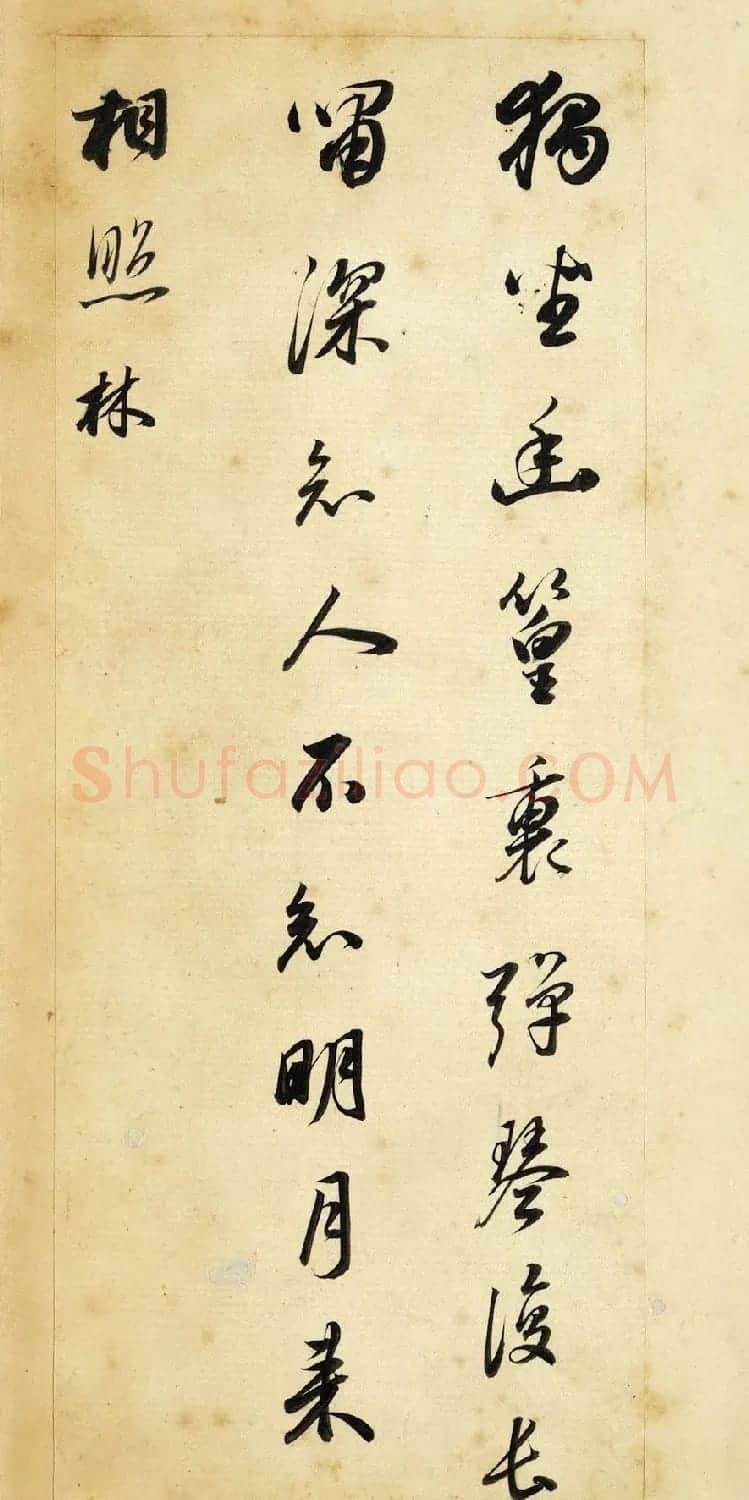 獨坐幽篁裏彈琴復長
嘯深知人不知明月来
相照林
Shufaziliao.COM